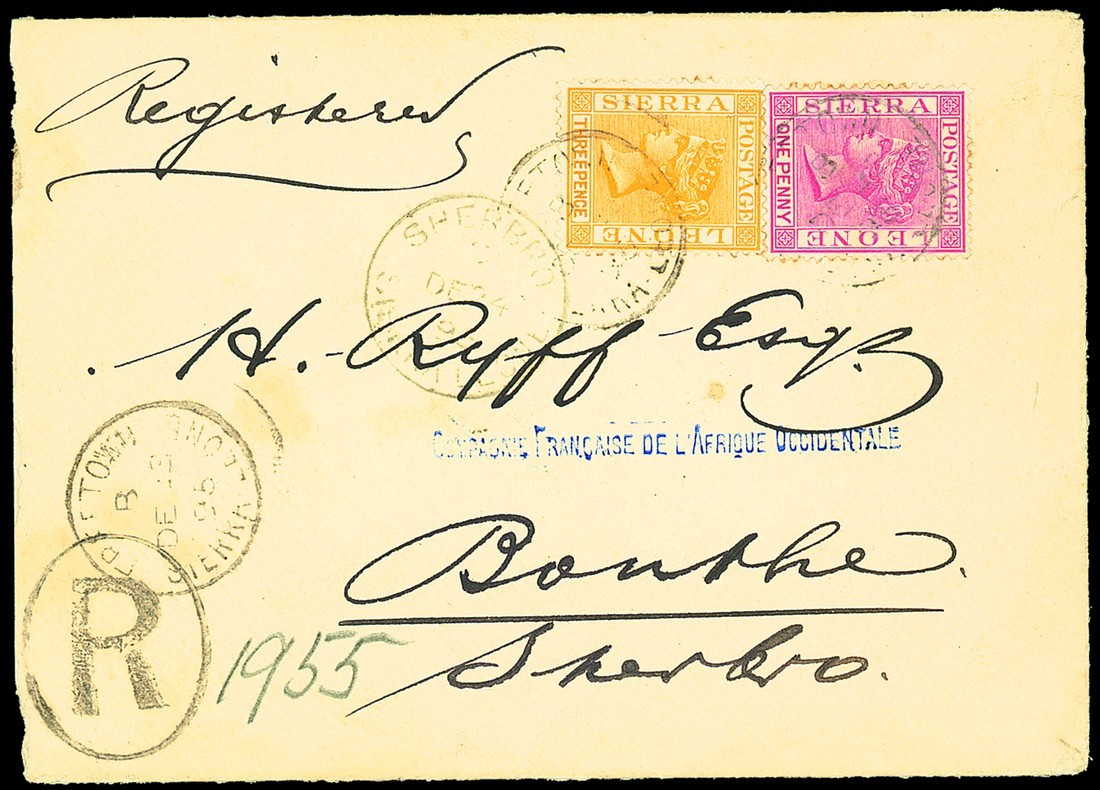 Registered
SIERRA
THREEPENCE
POSTAGE
LEONE
SIERRA
ONE PENNY
POSTAGE
LEONE
SHERBRO
DE 24
H. Ryff Esqr.
COMPAGNIE FRANÇAISE DE L'AFRIQUE OCCIDENTALE
FREETOWN
B
DE 13
95
SIERRA LEONE
Bonthe.
Sherbro.
R
1955